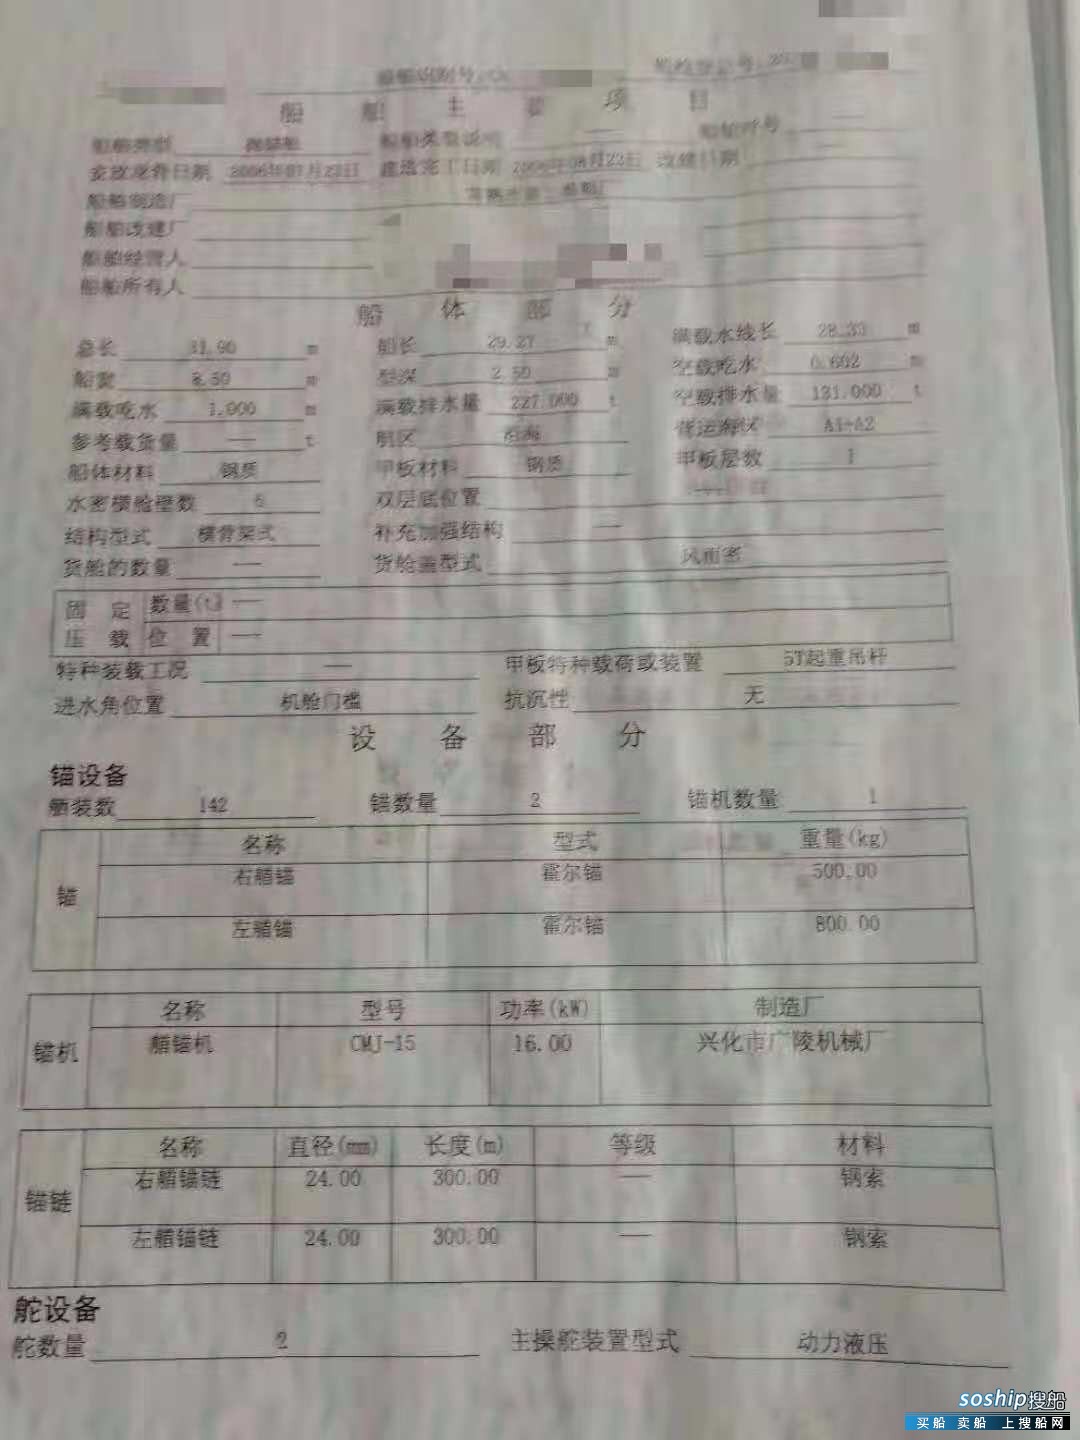 船舶识别号
船 舶 主 要 项 目
船舶类型 船舶类型说明 船舶呼号
安放龙骨日期 2006年07月22日 建造完工日期 2006年08月22日 改建日期
船舶制造厂
船舶改建厂
船舶经营人
船舶所有人
船 体 部 分
总长 31.90 m 船长 29.27 m 满载水线长 28.33 m
船宽 8.50 m 型深 2.50 m 空载吃水 0.602 m
满载吃水 1.000 m 满载排水量 227.000 t 空载排水量 131.000 t
参考载货量 —— t 航区 沿海 营运海区 A1+A2
船体材料 钢质 甲板材料 钢质 甲板层数 1
水密横舱壁数 6 双层底位置
结构型式 横骨架式 补充加强结构 ——
货舱的数量 —— 货舱盖型式 风雨密
固 定 数量(t) ——
压 载 位 置 ——
特种装载工况 —— 甲板特种载荷或装置 5T起重吊杆
进水角位置 机舱门槛 抗沉性 无
设 备 部 分
锚设备
舾装数 142 锚数量 2 锚机数量 1
名称 型式 重量(kg)
锚
右艏锚 霍尔锚 500.00
左艏锚 霍尔锚 800.00
名称 型号 功率(kW) 制造厂
锚机 艏锚机 CMJ-15 16.00 兴化市广陵机械厂
名称 直径(mm) 长度(m) 等级 材料
锚链
右艏锚链 24.00 300.00 —— 钢索
左艏锚链 24.00 300.00 —— 钢索
舵设备
舵数量 2 主操舵装置型式 动力液压
soship搜船
买船 卖船 上搜船网